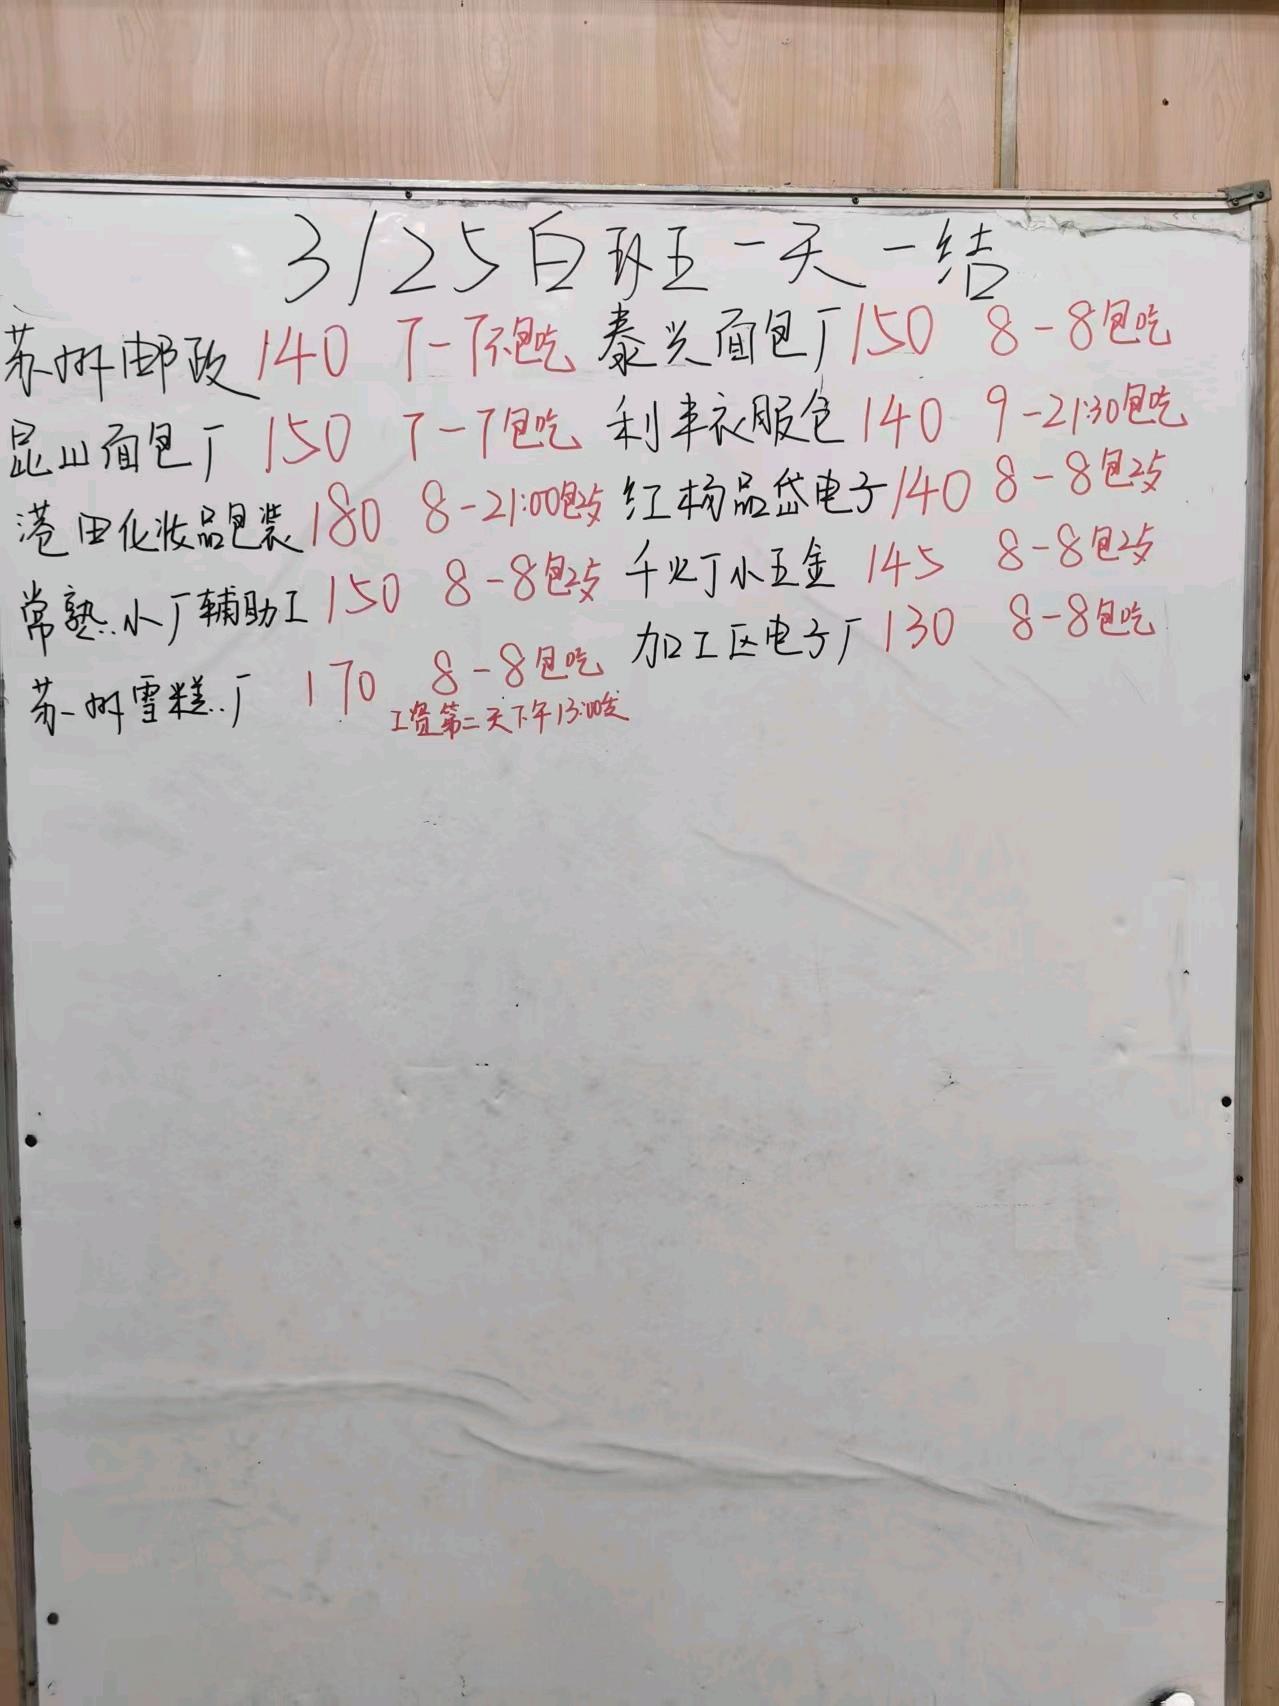 3/25白班一天一结
苏州邮政 140 7-7不包吃
昆山面包厂 150 7-7包吃
港田化妆品包装 180 8-21:00包吃
常熟小厂辅助工 150 8-8包吃
苏州雪糕厂 170 8-8包吃
工资第二天下午13:00发
泰兴面包厂 150 8-8包吃
利丰衣服仓 140 9-21:30包吃
红杨品岱电子 140 8-8包吃
千灯小五金 145 8-8包吃
加工区电子厂 130 8-8包吃